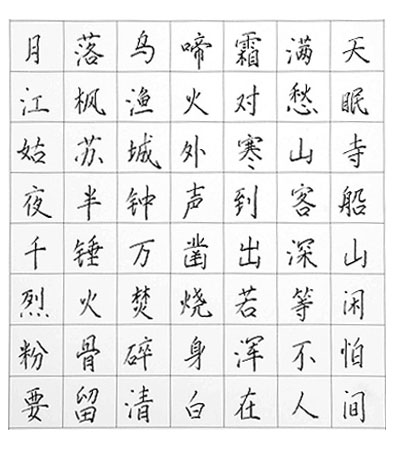 月落乌啼霜满天
江枫渔火对愁眠
姑苏城外寒山寺
夜半钟声到客船
千锤万凿出深山
烈火焚烧若等闲
粉骨碎身浑不怕
要留清白在人间